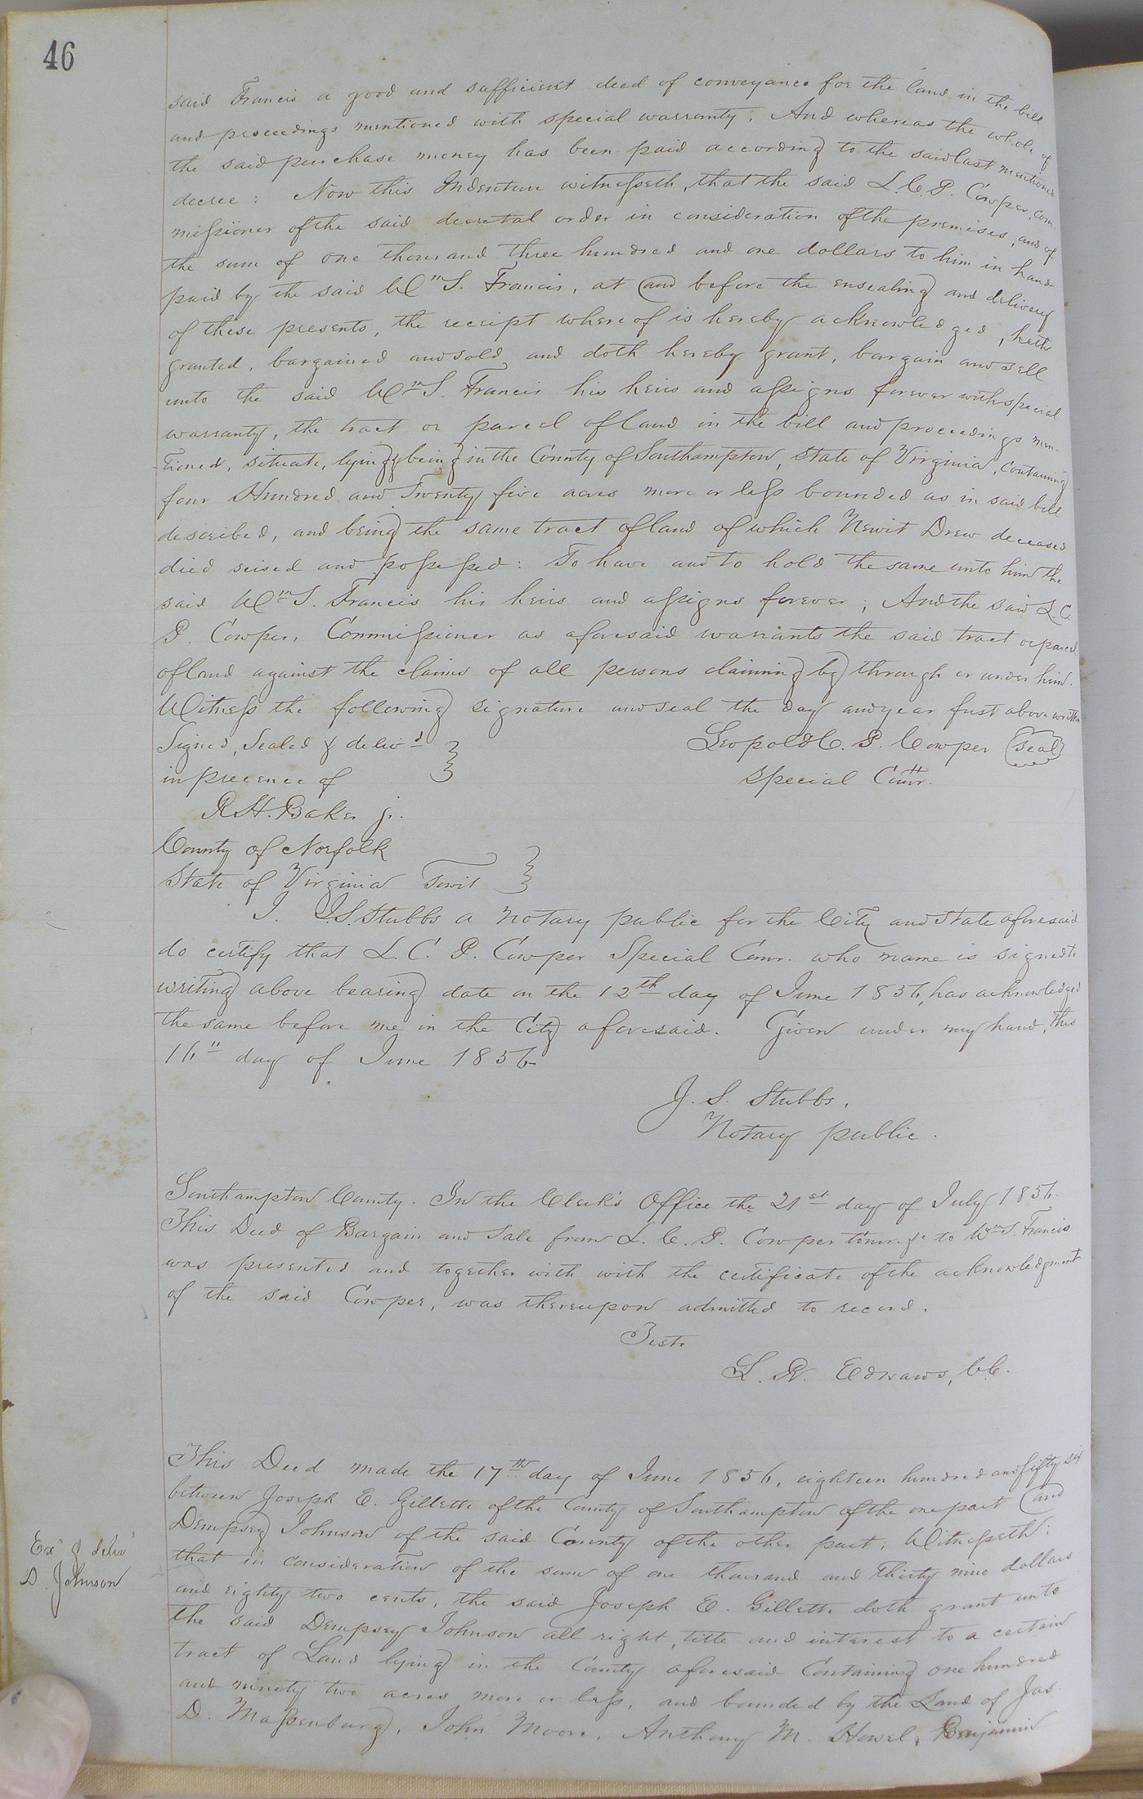 46
said Francis a good and sufficient deed of conveyance for the land in the bill
and proceedings mentioned with special warranty; And whereas the whole of
the said purchase money has been paid according to the said last mentioned
decree: Now this Indenture witnesseth, that the said L. C. P. Cowper, com
missioner of the said decretal order in consideration of the premises, and of
the sum of one thousand three hundred and one dollars to him in hand
paid by the said Wm S. Francis, at and before the ensealing and delivery
of these presents, the receipt whereof is hereby acknowledged, hath
granted, bargained and sold, and doth hereby grant, bargain and sell
unto the said Wm S. Francis his heirs and assigns forever with special
warranty, the tract or parcel of land in the bill and proceedings men-
tioned, situate, lying & being in the County of Southampton, State of Virginia, containing
four Hundred and Twenty five acres more or less bounded as in said bill
described, and being the same tract of land of which Newit Drew deceased
died seised and possessed: To have and to hold the same unto him the
said Wm S. Francis his heirs and assigns forever; And the said L. C.
P. Cowper, Commissioner as aforesaid warrants the said tract or parcel
of land against the claims of all persons claiming by through or under him.
Witness the following signature and seal the day and year first above written
Signed, Sealed & deliv'd
in presence of
R. H. Baker jr.
Leopold C. P. Cowper (Seal)
Special Comr.
County of Norfolk
State of Virginia Towit
I. J. S. Stubbs a Notary public for the City and State aforesaid
do certify that L. C. P. Cowper Special Comr. who name is signed to
writing above bearing date on the 12th day of June 1856, has acknowledged
the same before me in the City aforesaid. Given under my hand, this
16th day of June 1856
J. S. Stubbs,
Notary public.
Southampton County. In the Clerk's Office the 21st day of July 1856
This Deed of Bargain and Sale from L. C. P. Cowper Comr. &c to Wm S. Francis
was presented and together with with the certificate of the acknowledgment
of the said Cowper, was thereupon admitted to record.
Teste
L. R. Edwards, C.C.
Exd & deliv'd
D. Johnson
This Deed made the 17th day of June 1856, eighteen hundred and fifty six
between Joseph E. Gillette of the County of Southampton of the one part and
Dempsey Johnson of the said County of the other part; Witnesseth:
that in consideration of the sum of one thousand and thirty nine dollars
and eighty two cents, the said Joseph E. Gillette doth grant unto
the said Dempsey Johnson all right, title and interest to a certain
tract of Land lying in the County aforesaid Containing one hundred
and ninety two acres more or less, and bounded by the Land of Jas
D. Massenburg, John Moore, Anthony M. Howel, Benjamin